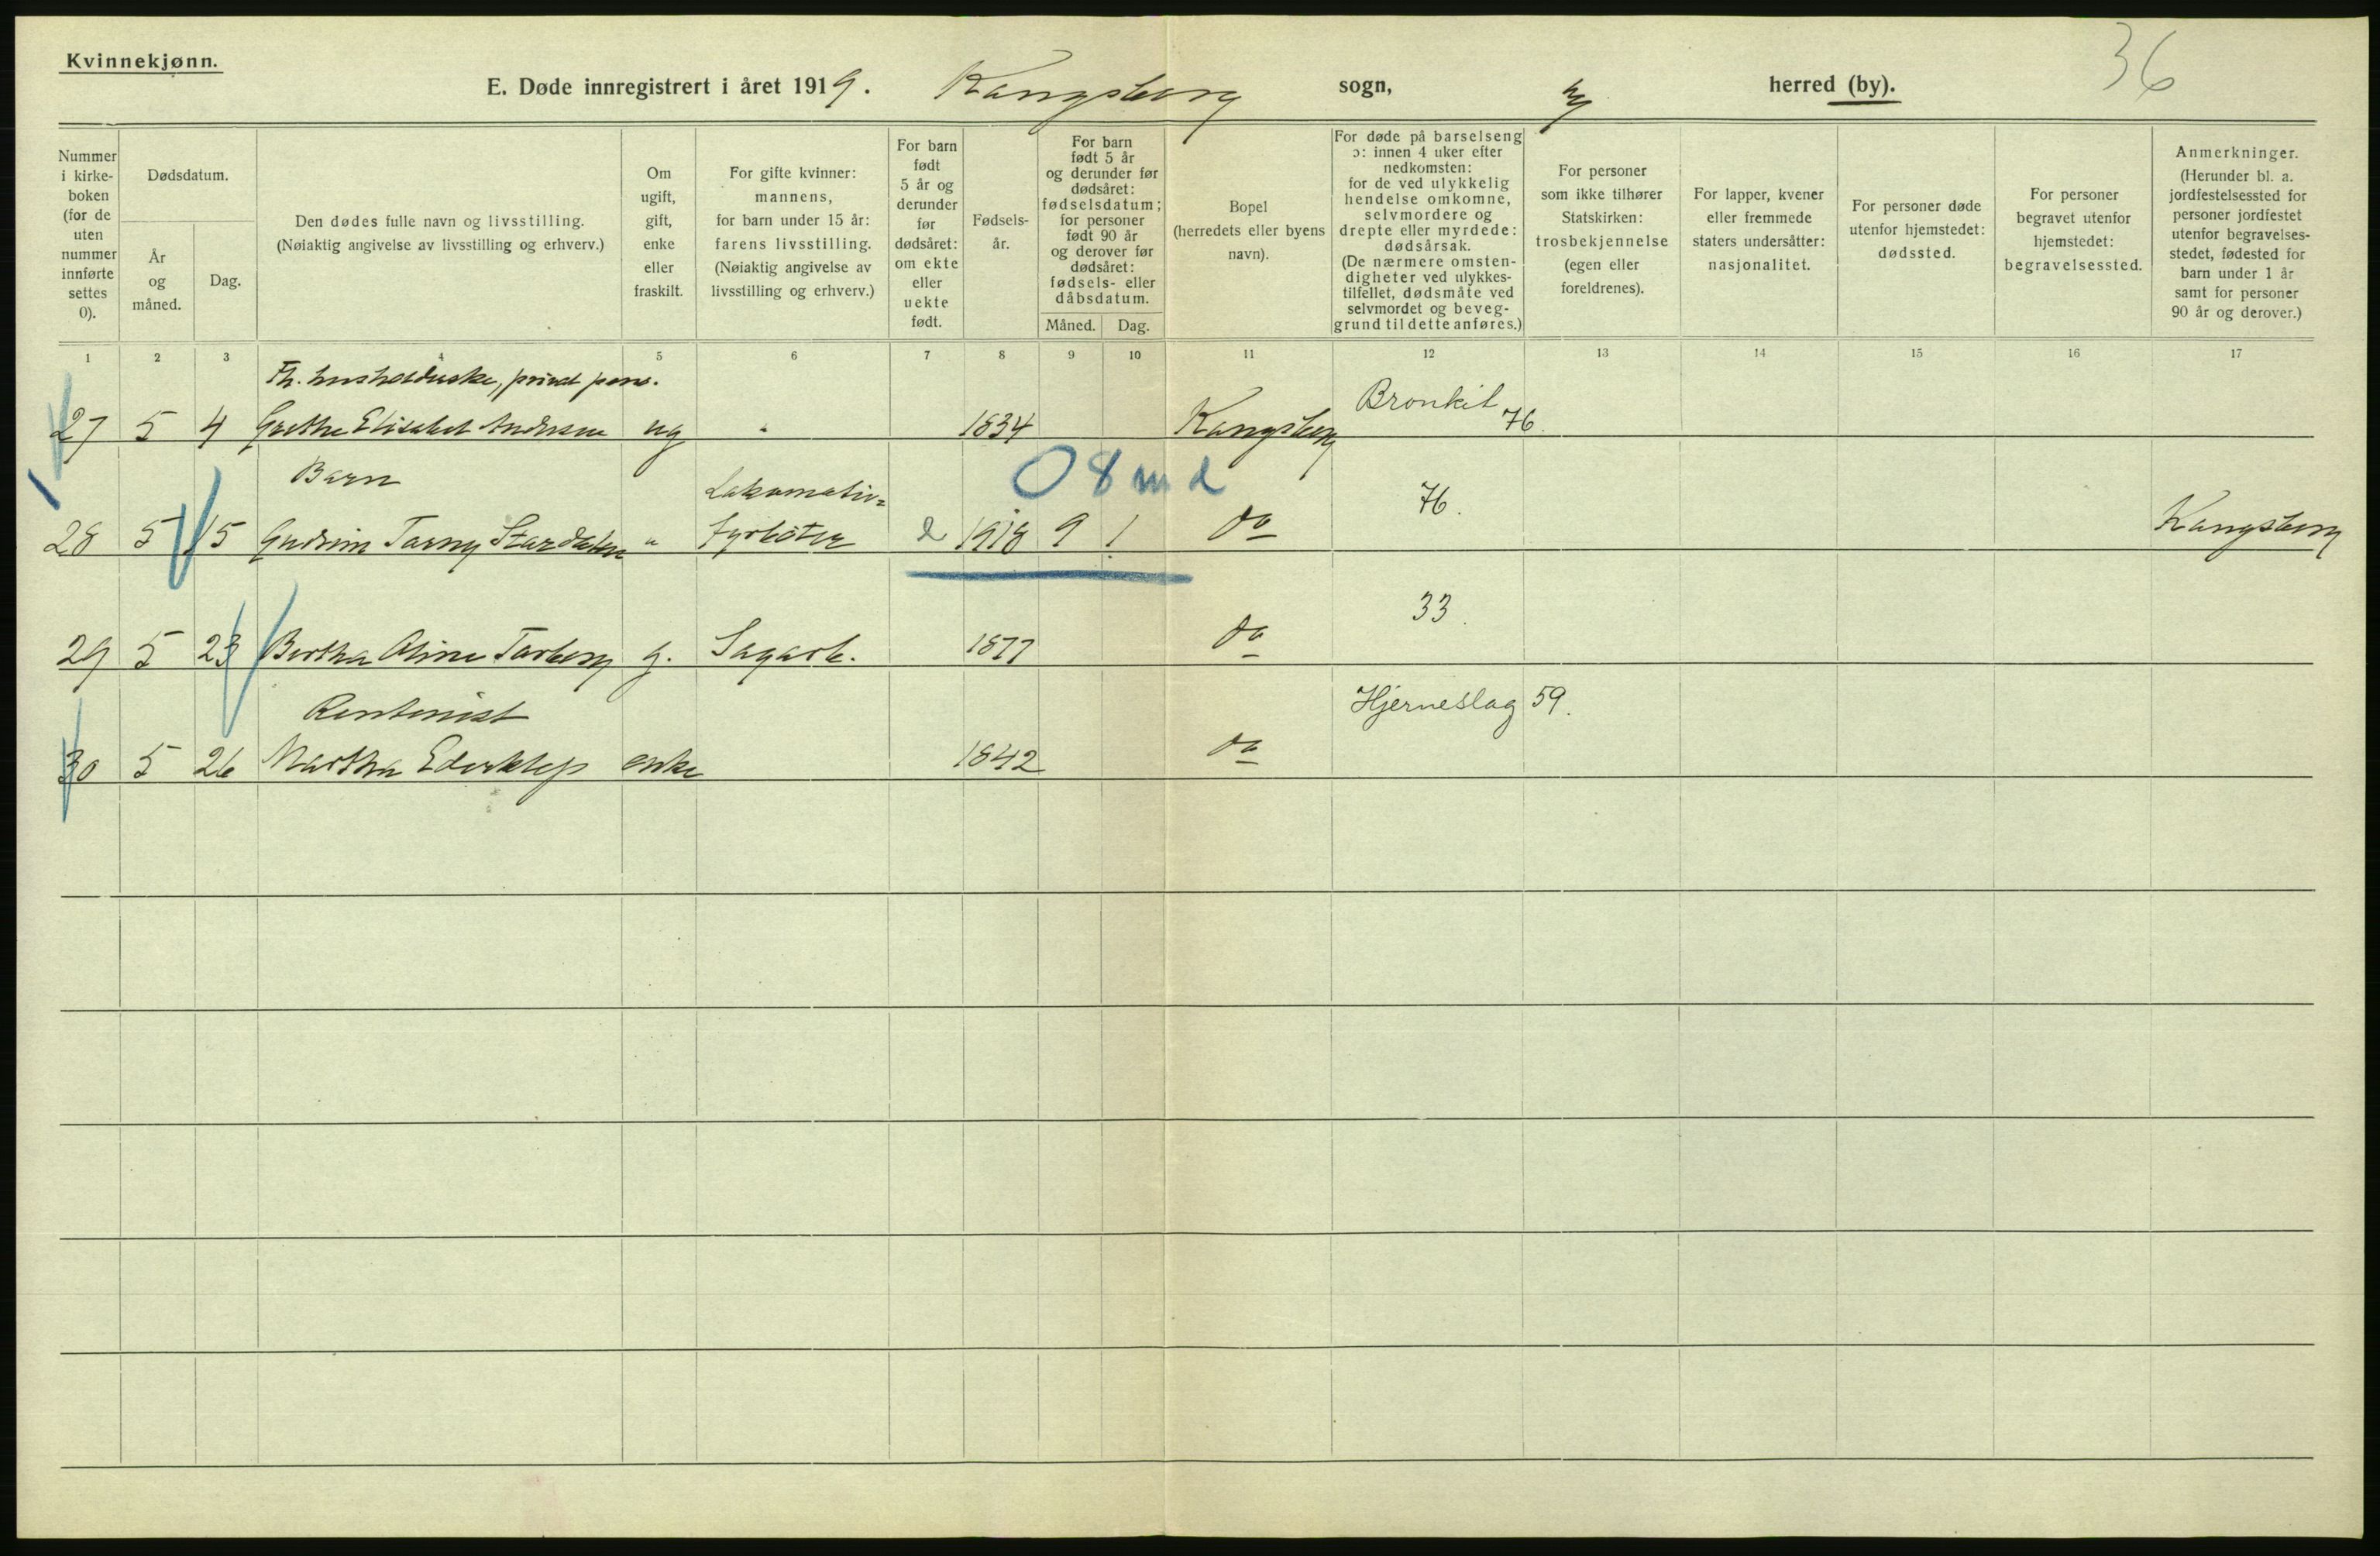 Kvinnekjønn.
E. Døde innregistrert i året 1919. Kongsberg sogn, by herred (by). 36
Nummer i kirke-boken (for de uten nummer innførte settes 0).
Dødsdatum.
År og måned.
Dag.
Den dødes fulle navn og livsstilling.
(Nøiaktig angivelse av livsstilling og erhverv.)
Om ugift, gift, enke eller fraskilt.
For gifte kvinner: mannens, for barn under 15 år: farens livsstilling. (Nøiaktig angivelse av livsstilling og erhverv.)
For barn født 5 år og derunder før dødsåret: om ekte eller uekte født.
Fødsels-år.
For barn født 5 år og derunder før dødsåret: fødselsdatum; for personer født 90 år og derover før dødsåret: fødsels- eller dåbsdatum.
Måned. Dag.
Bopel (herredets eller byens navn).
For døde på barselseng ɔ: innen 4 uker efter nedkomsten: for de ved ulykkelig hendelse omkomne, selvmordere og drepte eller myrdede: dødsårsak. (De nærmere omsten-digheter ved ulykkes-tilfellet, dødsmåte ved selvmordet og beveg-grund til dette anføres.)
For personer som ikke tilhører Statskirken: trosbekjennelse (egen eller foreldrenes).
For lapper, kvener eller fremmede staters undersåtter: nasjonalitet.
For personer døde utenfor hjemstedet: dødssted.
For personer begravet utenfor hjemstedet: begravelsessted.
Anmerkninger. (Herunder bl. a. jordfestelsessted for personer jordfestet utenfor begravelses-stedet, fødested for barn under 1 år samt for personer 90 år og derover.)
1 2 3 4 5 6 7 8 9 10 11 12 13 14 15 16 17
Fh. husholderske, privat pens.
27 5 4 Grethe Elisabet Andersen ug 1834 Kongsberg Bronkit 76.
Barn Lokomotiv= 08 md
28 5 15 Gudrun Torny Stordalen " fyrbøter e 1918 9 1 do 76. Kongsberg
29 5 23 Bertha Oline Torberg g. Sagarb. 1877 do 33.
Rentenist
30 5 26 Martha enke 1842 do Hjerneslag 59.